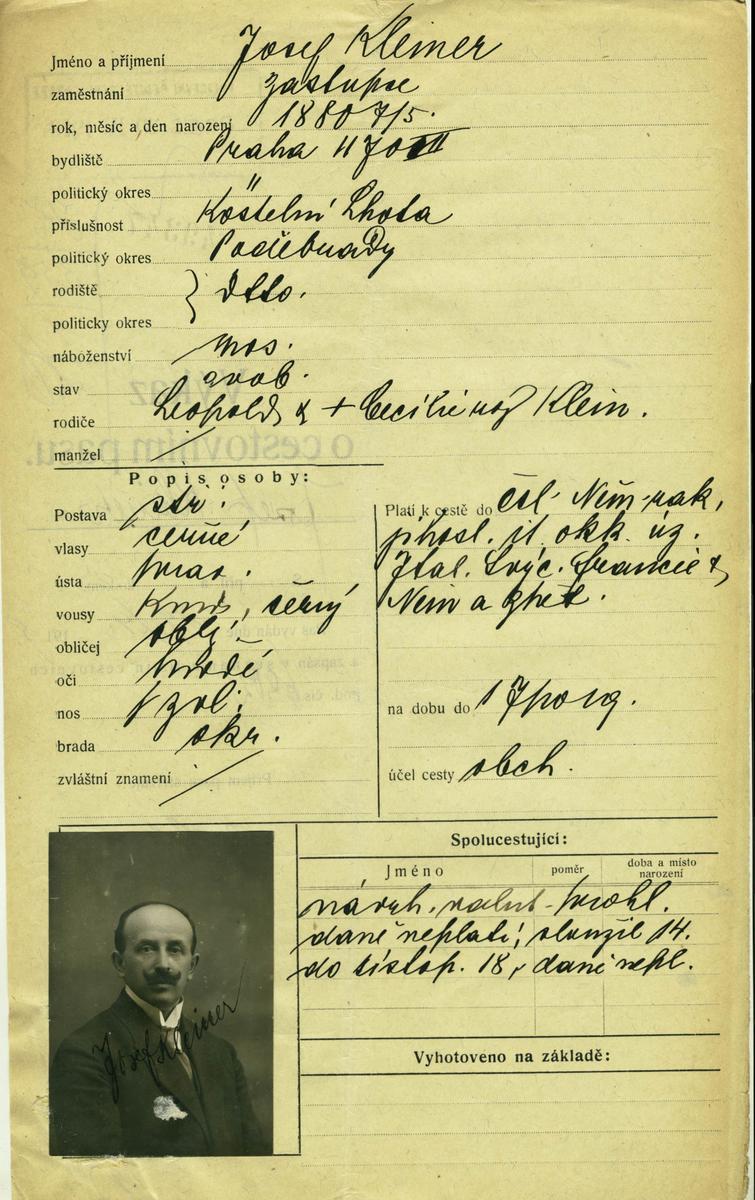 Jméno a příjmení Josef Kleiner
zaměstnání zástupce
rok, měsíc a den narození 1880 7/5.
bydliště Praha 470 II
politický okres "
příslušnost Kostelní Lhota
politický okres Poděbrady
rodiště } dtto.
politický okres
náboženství mos.
stav svob.
rodiče Leopold & + Cecilie roz Klein.
manžel /
Popis osoby:
Postava stř.
vlasy černé
ústa prav.
vousy Knír, černý
obličej obl.
oči hnědé
nos
brada okr.
zvláštní znamení /
Platí k cestě do čsl. Něm-rak,
jihosl. it. okk. úz.
Ital. Švýc. Francie &
Něm a zpět.
na dobu do 1
účel cesty obch.
Spolucestující:
Jméno poměr doba a místo narození
návrh. valut. prohl.
daně neplatí; sloužil 14.
do listop. 18, daně nepl.
Vyhotoveno na základě:
Josef Kleiner